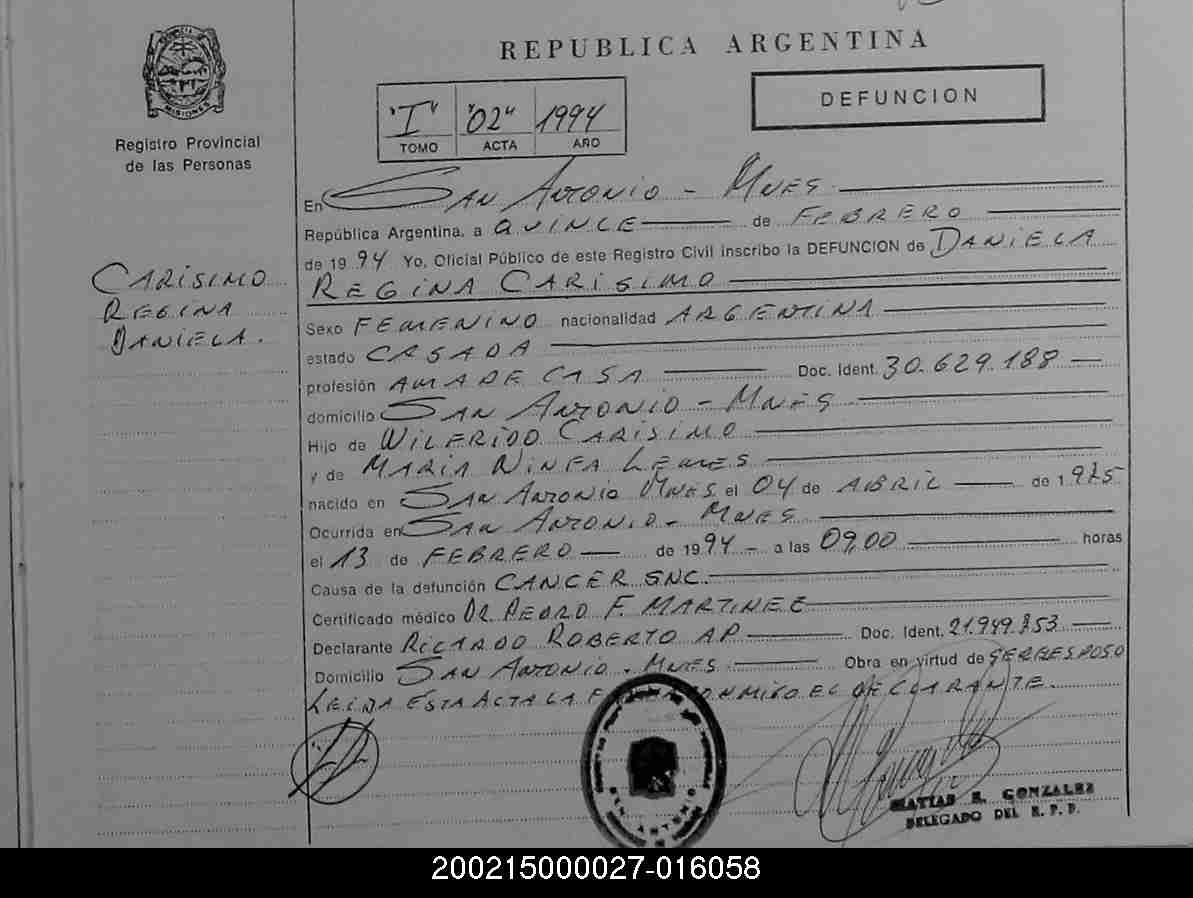 REPUBLICA ARGENTINA
MISIONES
Registro Provincial
de las Personas
"I" "02" 1994
TOMO ACTA AÑO
DEFUNCION
En SAN ANTONIO - MNES
República Argentina, a QUINCE de FEBRERO
de 1994 Yo, Oficial Público de este Registro Civil inscribo la DEFUNCION de DANIELA
REGINA CARISIMO
CARISIMO
REGINA
DANIELA.
Sexo FEMENINO nacionalidad ARGENTINA
estado CASADA
profesión AMA DE CASA Doc. Ident. 30.629.188
domicilio SAN ANTONIO - MNES
Hijo de WILFRIDO CARISIMO
y de MARIA NINFA LEMES
nacido en SAN ANTONIO MNES. el 04 de ABRIL de 1.975
Ocurrida en SAN ANTONIO - MNES
el 13 de FEBRERO de 1994 a las 09,00 horas
Causa de la defunción CANCER SNC.
Certificado médico DR. PEDRO F. MARTINEZ
Declarante RICARDO ROBERTO AP Doc. Ident. 21.949.853
Domicilio SAN ANTONIO - MNES Obra en virtud de SER ESPOSO
LEIDA ESTA ACTA LA FIRMA CONMIGO EL DECLARANTE.
SAN ANTONIO
MATIAS E. GONZALEZ
DELEGADO DEL R. P. P.
200215000027-016058